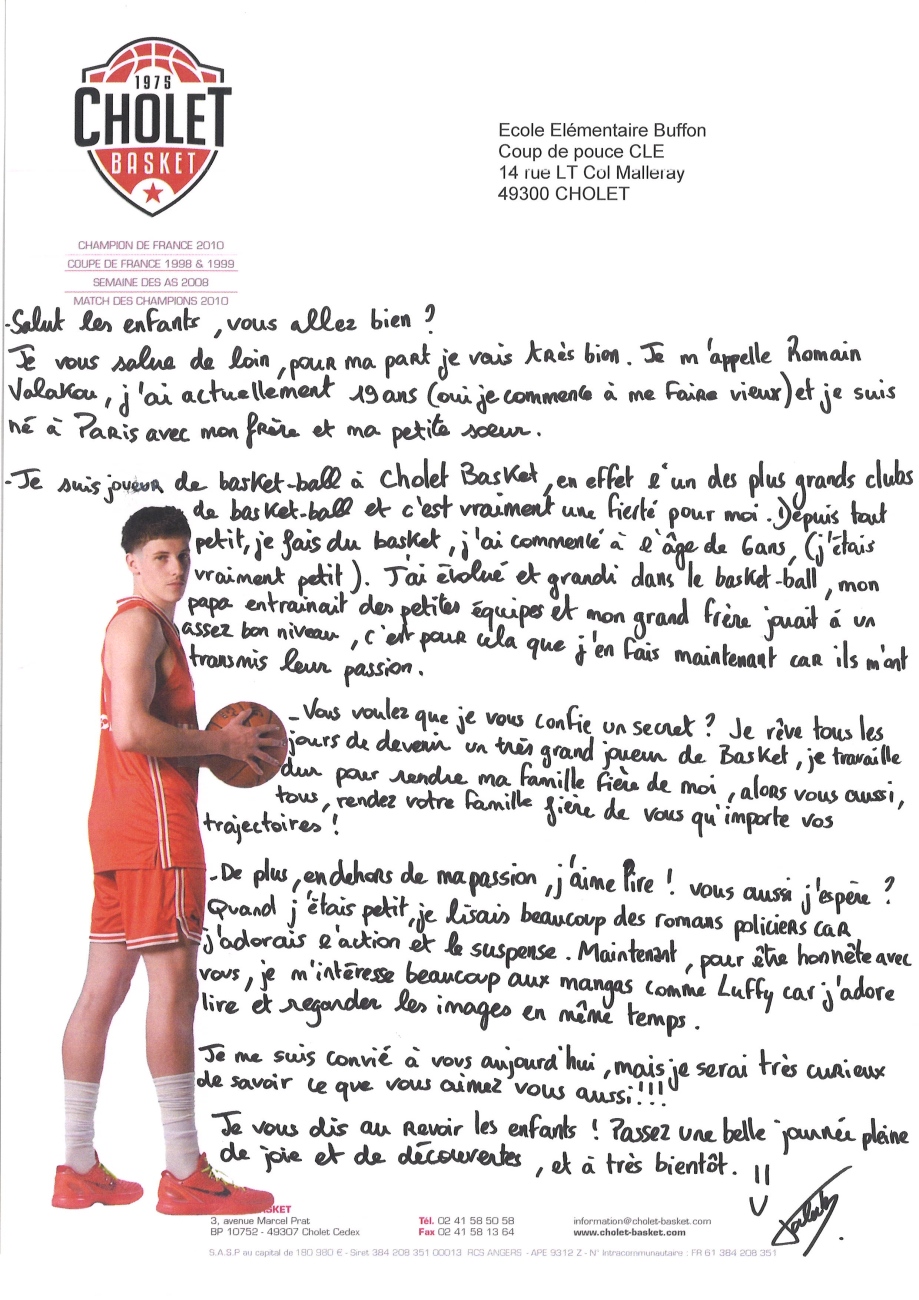 1975
CHOLET
BASKET
CHAMPION DE FRANCE 2010
COUPE DE FRANCE 1998 & 1999
SEMAINE DES AS 2008
MATCH DES CHAMPIONS 2010
Ecole Elémentaire Buffon
Coup de pouce CLE
14 rue LT Col Malleray
49300 CHOLET
-Salut les enfants, vous allez bien ?
Je vous salue de loin, pour ma part je vais très bien. Je m'appelle Romain
Valakou, j'ai actuellement 19 ans (oui je commence à me faire vieux) et je suis
né à Paris avec mon frère et ma petite sœur.
-Je suis joueur de basket-ball à Cholet Basket, en effet l'un des plus grands clubs
de basket-ball et c'est vraiment une fierté pour moi. Depuis tout
petit, je fais du basket, j'ai commencé à l'âge de 6 ans, (j'étais
vraiment petit). J'ai évolué et grandi dans le basket-ball, mon
papa entrainait des petites équipes et mon grand frère jouait à un
assez bon niveau, c'est pour cela que j'en fais maintenant car ils m'ont
transmis leur passion.
-Vous voulez que je vous confie un secret ? Je rêve tous les
jours de devenir un très grand joueur de Basket, je travaille
dur pour rendre ma famille fière de moi, alors vous aussi,
tous, rendez votre famille fière de vous qu'importe vos
trajectoires !
-De plus, en dehors de ma passion, j'aime lire ! vous aussi j'espère ?
Quand j'étais petit, je lisais beaucoup des romans policiers car
j'adorais l'action et le suspense. Maintenant, pour être honnête avec
vous, je m'intéresse beaucoup aux mangas comme Luffy car j'adore
lire et regarder les images en même temps.
Je me suis convié à vous aujourd'hui, mais je serai très curieux
de savoir ce que vous aimez vous aussi!!!
Je vous dis au revoir les enfants ! Passez une belle journée pleine
de joie et de découvertes, et à très bientôt. 
ASKET
3, avenue Marcel Prat
BP 10752 - 49307 Cholet Cedex
Tél. 02 41 58 50 58
Fax 02 41 58 13 64
information@cholet-basket.com
www.cholet-basket.com
S.A.S.P au capital de 180 980 € - Siret 384 208 351 00013 RCS ANGERS - APE 9312 Z - N° Intracommunautaire : FR 61 384 208 351